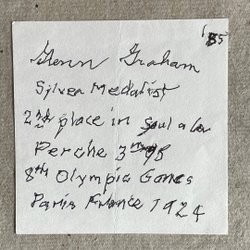 Glenn Graham
Silver Medalist
2nd place in
Perche 3 95
8th Olympic Games
Paris France 1924